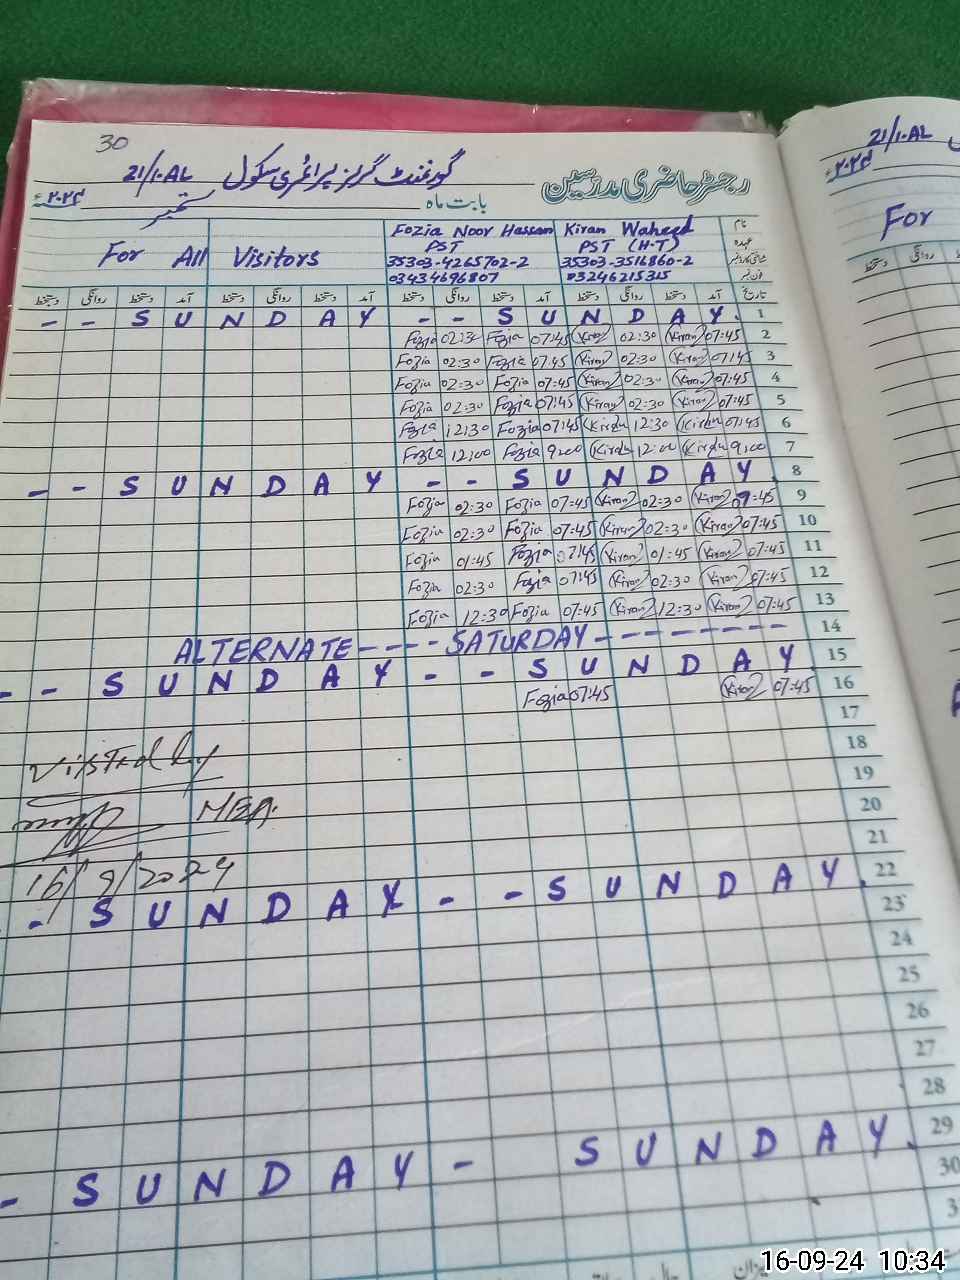 30
رجسٹر حاضری مدرسین گورنمنٹ گرلز پرائمری سکول 21/1.AL
بابت ماہ ستمبر ۲۰۲۴ء
نام Kiran Waheed Fozia Noor Hassan
عہدہ PST (H.T) PST
For All Visitors
شناختی کارڈ نمبر 35303-3516860-2 35303-4265702-2
فون نمبر 03246215315 03434696807
تاریخ آمد دستخط روانگی دستخط آمد دستخط روانگی دستخط آمد دستخط روانگی دستخط آمد دستخط روانگی دستخط
- - SUNDAY - - SUNDAY. 1
Fozia 02:30 Fozia 07:45 Kiran 02:30 Kiran 07:45 2
Fozia 02:30 Fozia 07:45 Kiran 02:30 Kiran 07:45 3
Fozia 02:30 Fozia 07:45 Kiran 02:30 Kiran 07:45 4
Fozia 02:30 Fozia 07:45 Kiran 02:30 Kiran 07:45 5
Fozia 12:30 Fozia 07:45 Kiran 12:30 Kiran 07:45 6
Fozia 12:00 Fozia 9:00 Kiran 12:00 Kiran 9:00 7
- - SUNDAY - - SUNDAY. 8
Fozia 02:30 Fozia 07:45 Kiran 02:30 Kiran 07:45 9
Fozia 02:30 Fozia 07:45 Kiran 02:30 Kiran 07:45 10
Fozia 01:45 Fozia 07:45 Kiran 01:45 Kiran 07:45 11
Fozia 02:30 Fozia 07:45 Kiran 02:30 Kiran 07:45 12
Fozia 12:30 Fozia 07:45 Kiran 12:30 Kiran 07:45 13
ALTERNATE - - - - SATURDAY - - - - - - - 14
- - SUNDAY - - SUNDAY. 15
Fozia 07:45 Kiran 07:45 16
17
18
Visited by
19
20
MEA.
21
16/9/2024
- SUNDAY - - SUNDAY. 22
23
24
25
26
27
28
- SUNDAY - SUNDAY. 29
30
3
21/1.AL
۲۰۲۴ء
For
دستخط روانگی
16-09-24 10:34